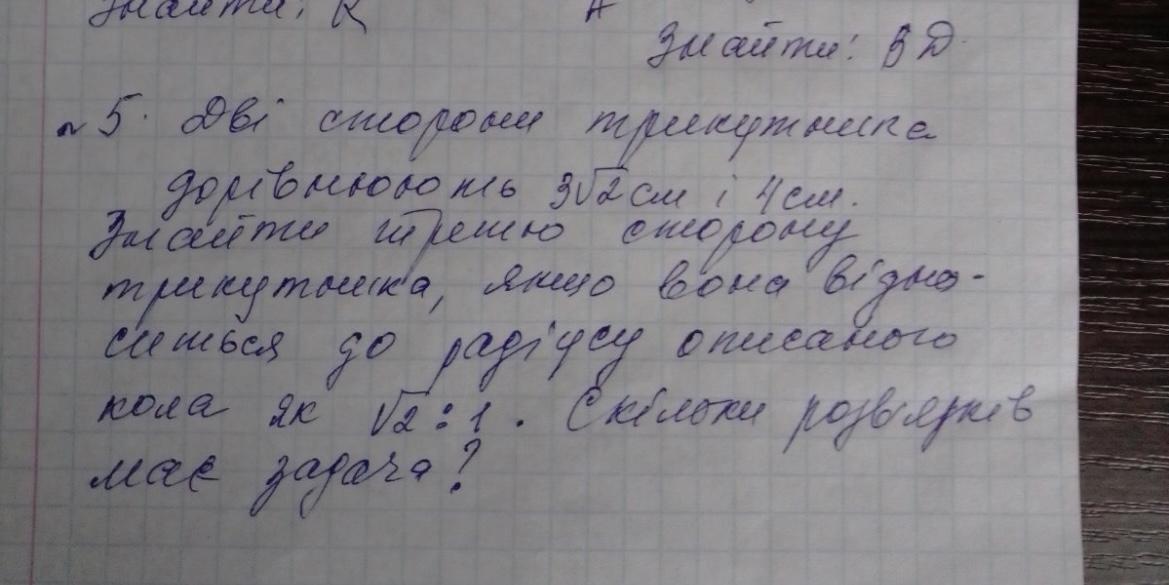 Знайти: R
A
Знайти: BD.
№5. Дві сторони трикутника
дорівнюють 3√2 см і 4 см.
Знайти третю сторону
трикутника, якщо вона відно-
ситься до радіусу описаного
кола як √2 : 1. Скільки розв'язків
має задача?